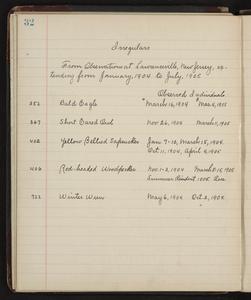 32
Irregulars
From Observations at Lawrenceville, New Jersey, ex-
tending from January, 1904 to July, 1905
Observed Individuals
352 Bald Eagle March 16, 1904 Mar. 5, 1905
367 Short Eared Owl Nov 26, 1904 March 11, 1905
402 Yellow Bellied Sapsucker Jan 7-10, March 15, 1904.
Oct. 11, 1904, April 9, 1905
406 Red-headed Woodpecker Nov. 1-2, 1904 March 15, 1905
Summer Resident 1905.
722 Winter Wren May 6, 1904 Oct. 2, 1904